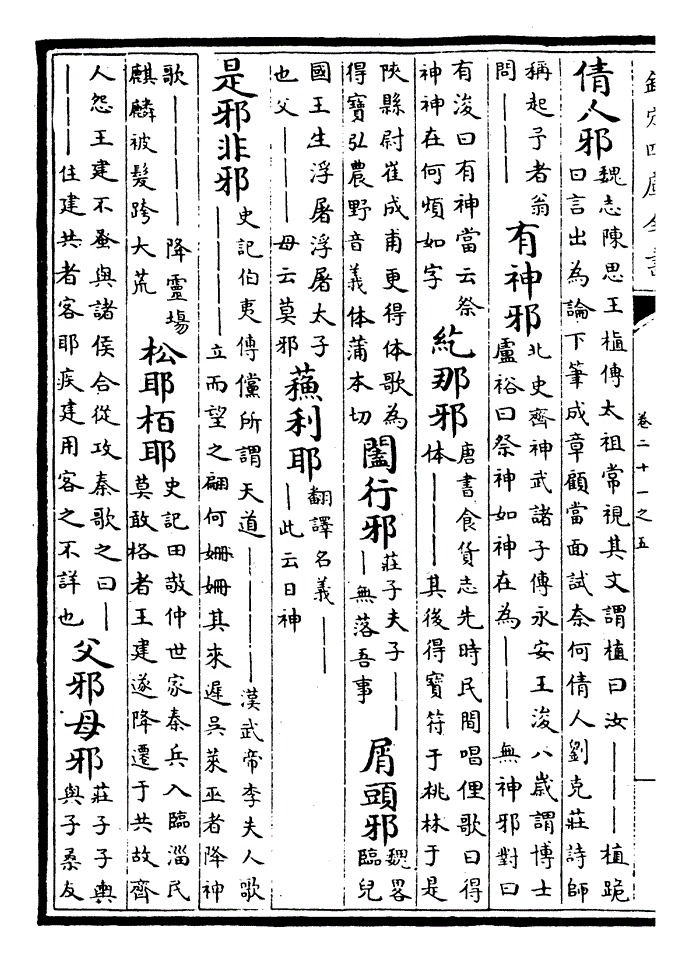 欽定四庫全書
卷二十一之五
倩人邪
魏志陳思王植傳太祖常視其文謂植曰汝丨丨丨植跪
曰言出為論下筆成章顧當面試奈何倩人劉克莊詩師
稱起予者翁
問丨丨丨
有神邪
北史齊神武諸子傳永安王浚八歲謂博士
盧裕曰祭神如神在為丨丨丨無神邪對曰
有浚曰有神當云祭
神神在何煩如字
紇那邪
唐書食貨志先時民間唱俚歌曰得
体丨丨丨其後得寶符于桃林于是
陜縣尉崔成甫更得体歌為
得寶弘農野音義体蒲本切
闔行邪
莊子夫子丨丨
丨無落吾事
屑頭邪
魏畧
臨兒
國王生浮屠浮屠太子
也父丨丨丨母云莫邪
蘓利耶
翻譯名義丨丨
丨此云日神
是邪非邪
史記伯夷傳儻所謂天道丨丨丨丨漢武帝李夫人歌
丨丨丨丨立而望之翩何姍姍其來遲吳萊巫者降神
歌丨丨丨丨降靈場
麒麟被髮跨大荒
松耶栢耶
史記田敬仲世家秦兵入臨淄民
莫敢格者王建遂降遷于共故齊
人怨王建不蚤與諸侯合從攻秦歌之曰丨
丨丨丨住建共者客耶疾建用客之不詳也
父邪母邪
莊子子輿
與子桑友